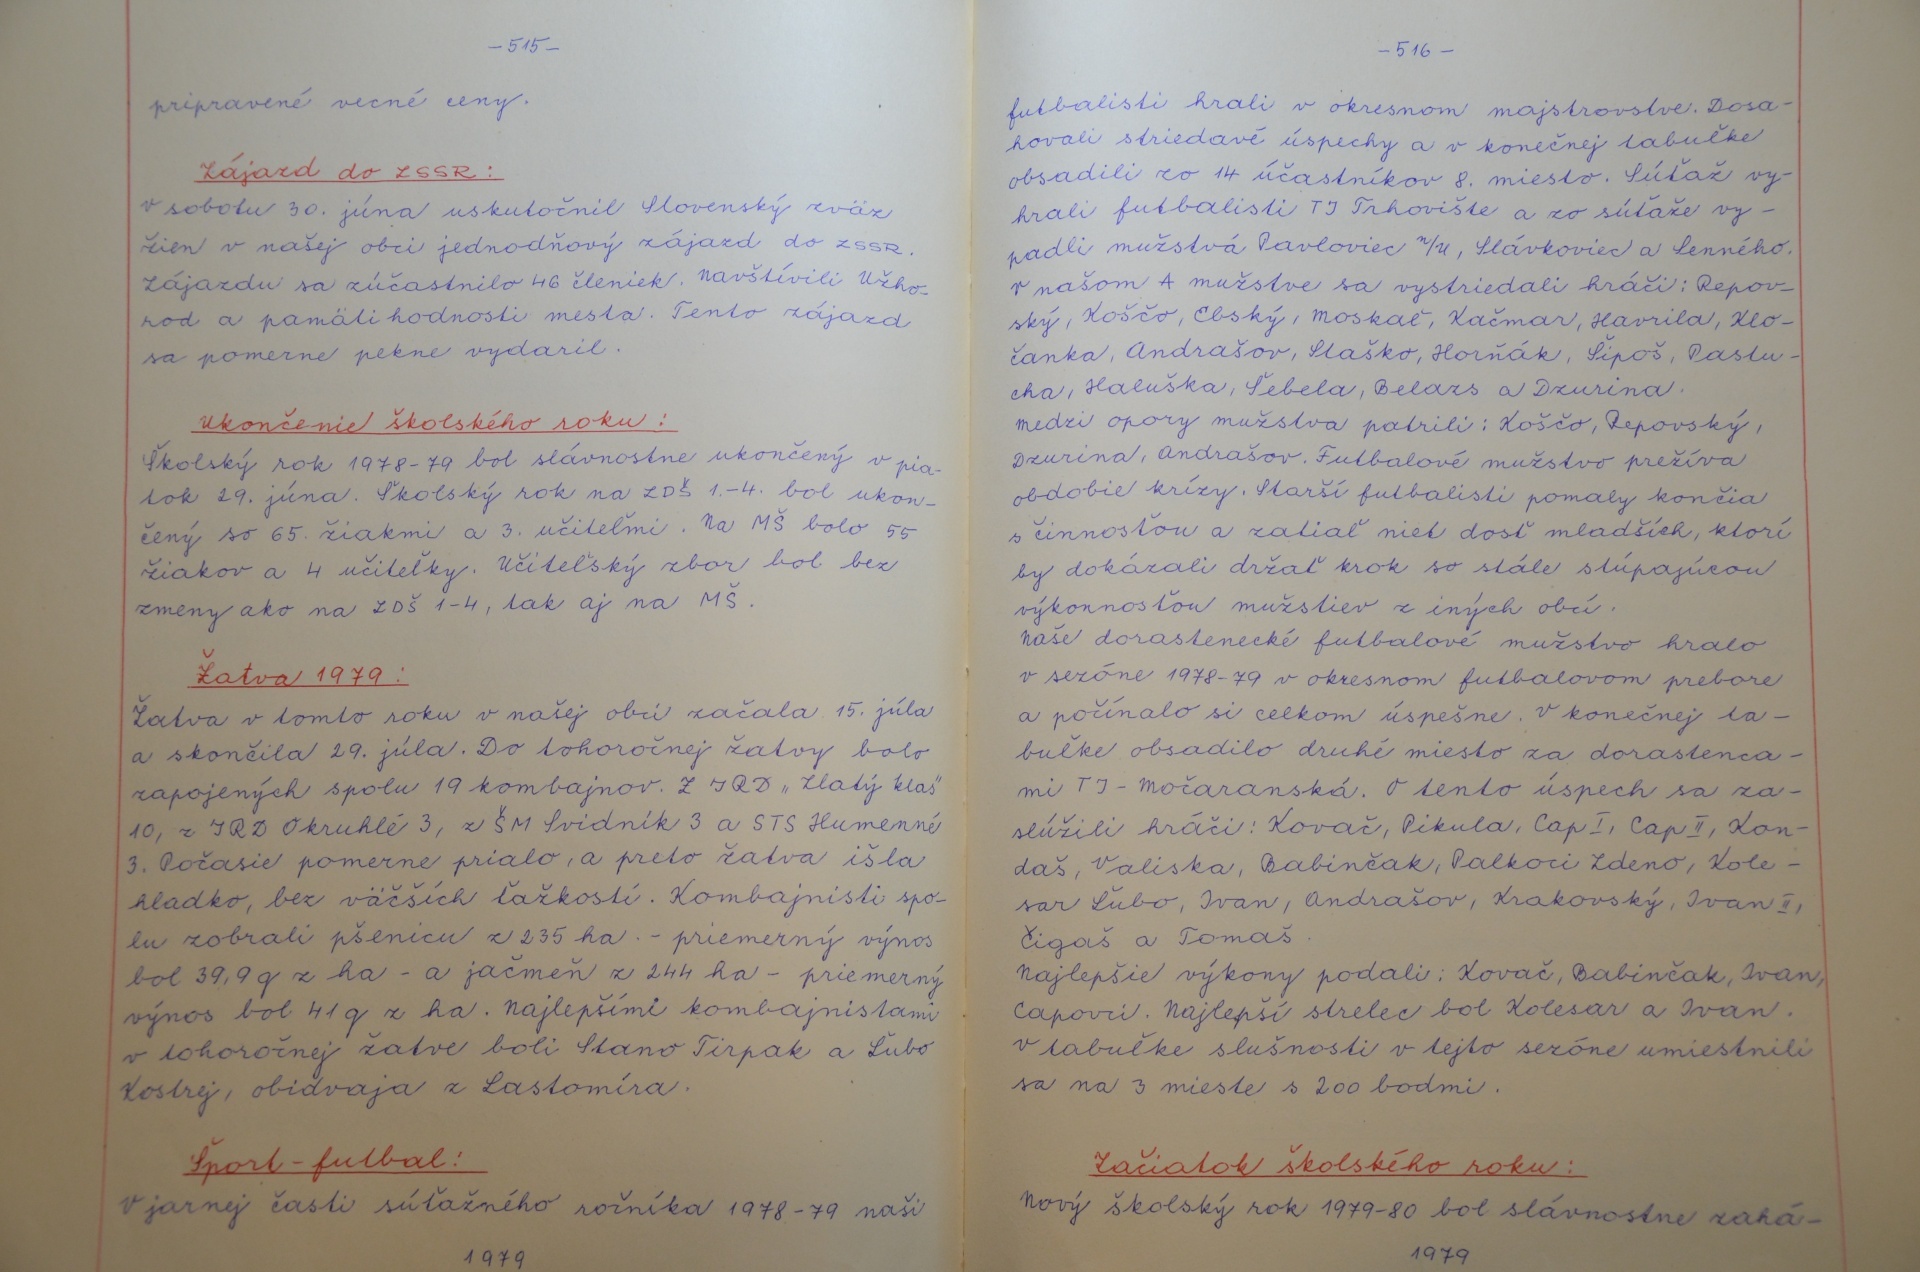 -515-
pripravené vecné ceny.
Zájazd do ZSSR:
V sobotu 30. júna uskutočnil Slovenský zväz
žien v našej obci jednodňový zájazd do ZSSR.
Zájazdu sa zúčastnilo 46 členiek. Navštívili Užho-
rod a pamätihodnosti mesta. Tento zájazd
sa pomerne pekne vydaril.
Ukončenie školského roku:
Školský rok 1978-79 bol slávnostne ukončený v pia-
tok 29. júna. Školský rok na ZDŠ 1.-4. bol ukon-
čený so 65. žiakmi a 3. učiteľmi. Na MŠ bolo 55
žiakov a 4 učiteľky. Učiteľský zbor bol bez
zmeny ako na ZDŠ 1-4, tak aj na MŠ.
Žatva 1979:
Žatva v tomto roku v našej obci začala 15. júla
a skončila 29. júla. Do tohoročnej žatvy bolo
zapojených spolu 19 kombajnov. Z JRD „Zlatý klas"
10, z JRD Okruhlé 3, z ŠM Svidník 3 a STS Humenné
3. Počasie pomerne prialo, a preto žatva išla
hladko, bez väčších ťažkostí. Kombajnisti spo-
lu zobrali pšenicu z 235 ha. - priemerný výnos
bol 39,9 q z ha - a jačmeň z 244 ha - priemerný
výnos bol 41 q z ha. Najlepšími kombajnistami
v tohoročnej žatve boli Stano Tirpak a Ľubo
Kostrej, obidvaja z Lastomíra.
Šport-futbal:
V jarnej časti súťažného ročníka 1978-79 naši
1979
-516-
futbalisti hrali v okresnom majstrovstve. Dosa-
hovali striedavé úspechy a v konečnej tabuľke
obsadili zo 14 účastníkov 8. miesto. Súťaž vy-
hrali futbalisti TJ Trhovište a zo súťaže vy-
padli mužstvá Pavloviec n/U, Slávkoviec a Senného.
V našom A mužstve sa vystriedali hráči: Repov-
ský, Koščo, Ebský, Moskaľ, Kačmar, Havrila, Klo-
čanka, Andrašov, Staško, Horňák, Šipoš, Pastu-
cha, Haluška, Šebela, Belazs a Dzurina.
Medzi opory mužstva patrili: Koščo, Repovský,
Dzurina, Andrašov. Futbalové mužstvo prežíva
obdobie krízy. Starší futbalisti pomaly končia
s činnosťou a zatiaľ niet dosť mladších, ktorí
by dokázali držať krok so stále stúpajúcou
výkonnosťou mužstiev z iných obcí.
Naše dorastenecké futbalové mužstvo hralo
v sezóne 1978-79 v okresnom futbalovom prebore
a počínalo si celkom úspešne. V konečnej ta-
buľke obsadilo druhé miesto za dorastenca-
mi TJ - Močaranská. O tento úspech sa za-
slúžili hráči: Kovač, Pikula, Cap I, Cap II, Kon-
daš, Valiska, Babinčak, Palkoci Zdeno, Kole-
sar Ľubo, Ivan, Andrašov, Krakovský, Ivan II,
Čigaš a Tomaš.
Najlepšie výkony podali: Kovač, Babinčak, Ivan,
Capovci. Najlepší strelec bol Kolesar a Ivan.
V tabuľke slušnosti v tejto sezóne umiestnili
sa na 3 mieste s 200 bodmi.
Začiatok školského roku:
Nový školský rok 1979-80 bol slávnostne zahá-
1979